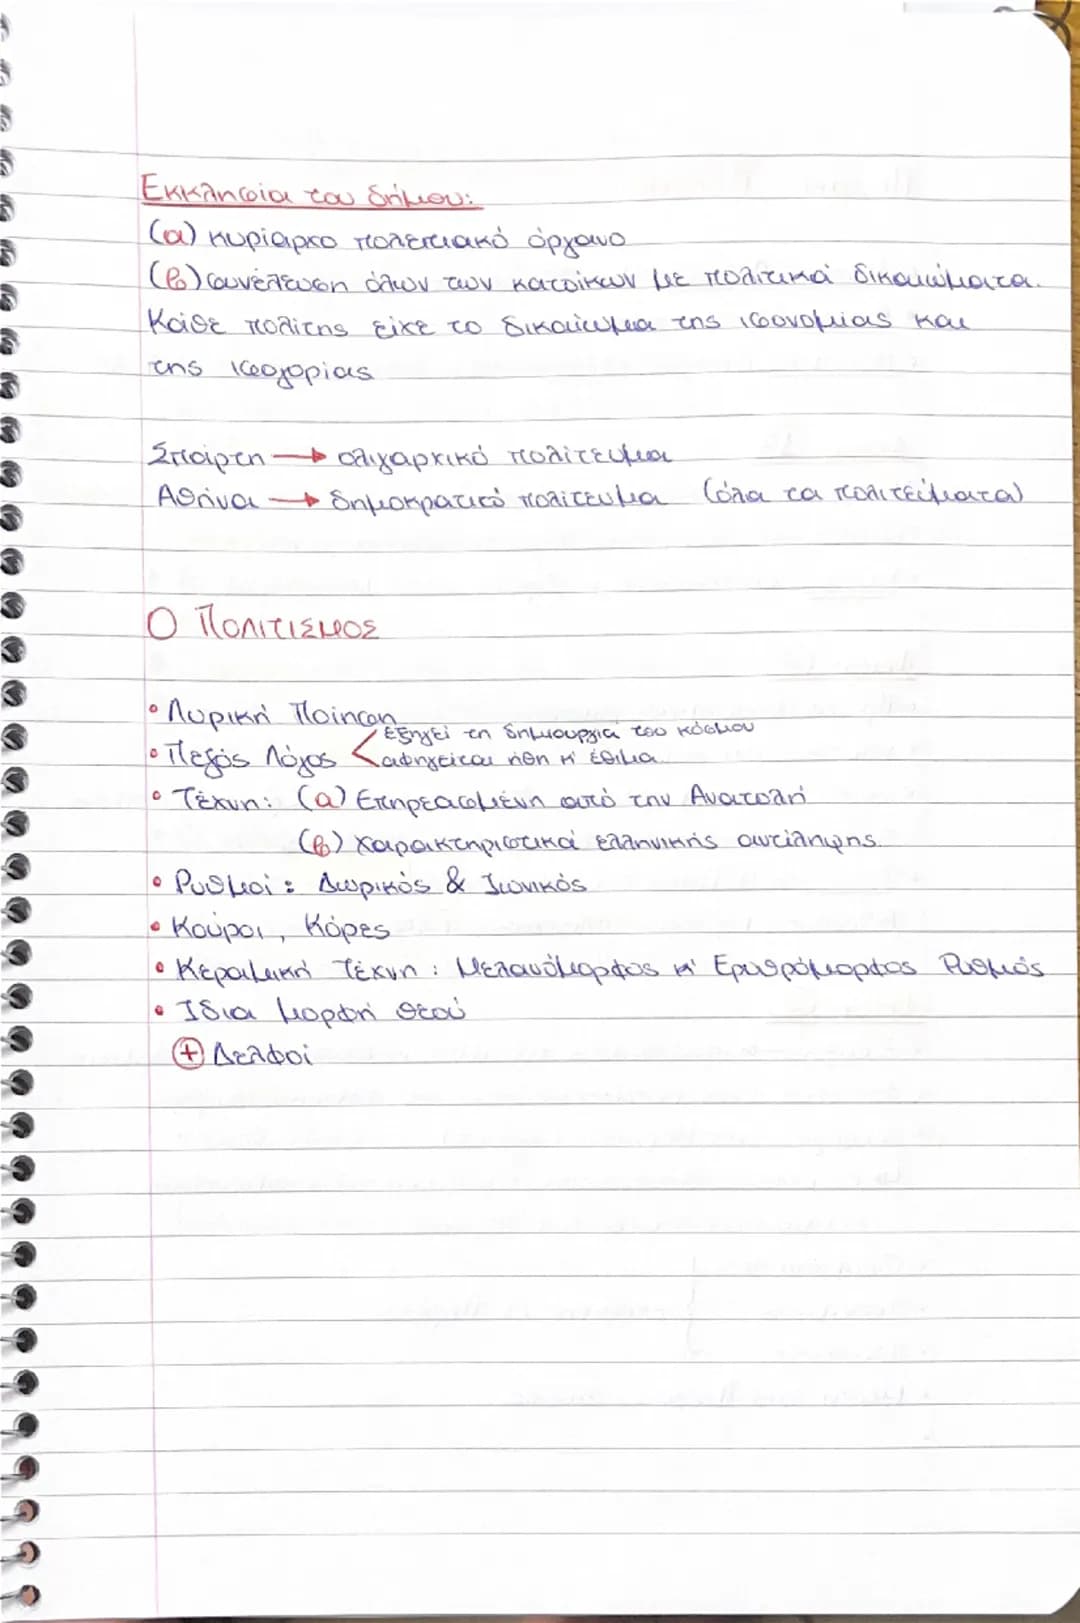 Εκκλησία του δήμου:
(α) κυρίαρχο πολιτειακό όργανο
(β) συνέλευση όλων των κατοίκων με πολιτικά δικαιώματα.
Κάθε πολίτης είχε το δικαίωμα της ισονομίας και
της ισηγορίας
Σπάρτη → ολιγαρχικό πολίτευμα
Αθήνα → δημοκρατικό πολίτευμα (όλα τα πολιτεύματα)
Ο ΠΟΛΙΤΙΣΜΟΣ
• Λυρική Ποίηση
• Πεζός Λόγος < εξηγεί τη δημιουργία του κόσμου
αφηγείται ήθη κ' έθιμα
• Τέχνη: (α) Επηρεασμένη από την Ανατολή
(β) χαρακτηριστικά ελληνικής αντίληψης.
• Ρυθμοί: Δωρικός & Ιωνικός
• Κούροι, Κόρες
• Κεραμική Τέχνη: Μελανόμορφος κ' Ερυθρόμορφος Ρυθμός
• Ίδια μορφή θεού
+ Δελφοί